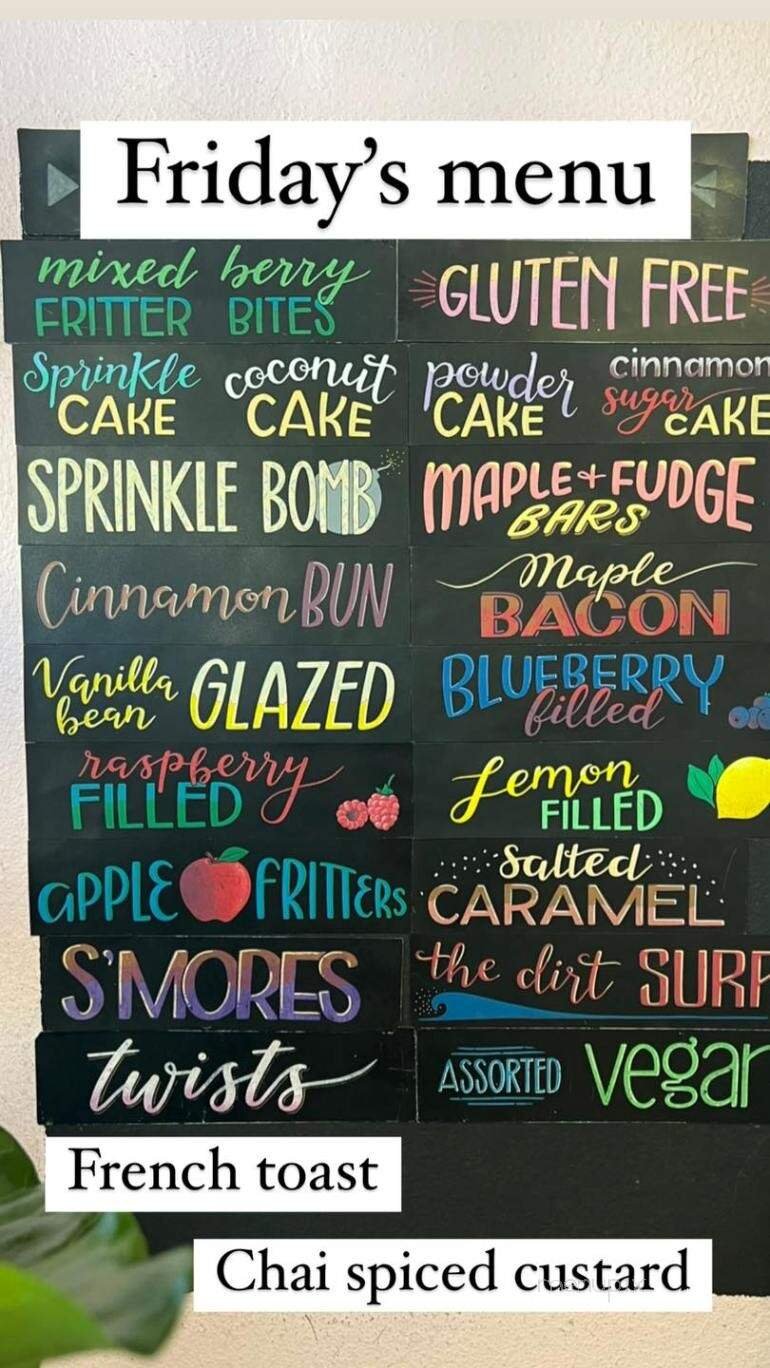 Friday's menu
mixed berry
FRITTER BITES
GLUTEN FREE
Sprinkle CAKE
coconut CAKE
powder CAKE
cinnamon sugar CAKE
SPRINKLE BOMB
MAPLE + FUDGE
BARS
Cinnamon BUN
Maple
BACON
Vanilla bean GLAZED
BLUEBERRY
filled
raspberry
FILLED
Lemon
FILLED
APPLE FRITTERS
Salted
CARAMEL
S'MORES
the dirt SURF
twists
ASSORTED vegan
French toast
Chai spiced custard